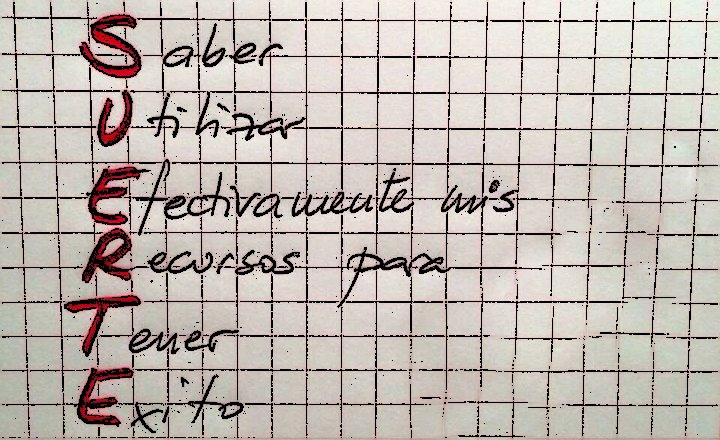 Saber
Utilizar
Efectivamente mis
Recursos para
Tener
Exito